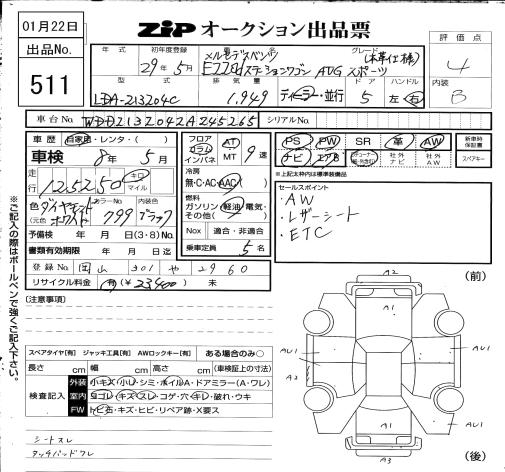 01月22日
ZIP オークション出品票
出品No.
511
年式
初年度登録
29年5月
車名
メルセデスベンツ
E220d ステーションワゴン AVG スポーツ
グレード
(本革仕様)
評価点
4
内装
B
型式
LDA-213204C
排気量
1,949
ディーラー・並行
ドア
5
ハンドル
左・右
車台No.
WDD2132042A245265
シリアルNo.
車歴 自家用・レンタ・( )
車検 8年 5月
走行 125250 キロ マイル
色(元色) ダイヤモンドホワイト
カラーNo.
799
内装色
ブラック
予備検 年 月 日(3・8)No.
書類有効期限 年 月 日迄
登録No. 岡山 301 や 2960
リサイクル料金 有(¥23400) 未
フロア コラム インパネ
AT MT 9速
冷房
無・C・AC・AAC
燃料
ガソリン・軽油・電気・その他( )
Nox 適合・非適合
乗車定員 5名
PS PW SR 革 AW
ナビ エアB 社外ナビ 社外AW
※上記太枠内は標準装備品
新車時保証書
スペアキー
セールスポイント
・AW
・レザーシート
・ETC
※ご記入の際はボールペンで強くご記入下さい。
[注意事項]
スペアタイヤ[有] ジャッキ工具[有] AWロックキー[有] ある場合のみ○
長さ cm 幅 cm 高さ cm (車検証上の寸法)
検査記入
外装 小キズ・小凹・シミ・ホイルA・ドアミラー(A・ワレ)
室内 ヨゴレ・キズ・スレ・コゲ・穴・キレ・破れ・ウキ
FW トビ石・キズ・ヒビ・リペア跡・X要ス
シートスレ
タッチパッドワレ
(前)
A2
A1
AU1
AU1
A2
A1
AU1
A1
(後)